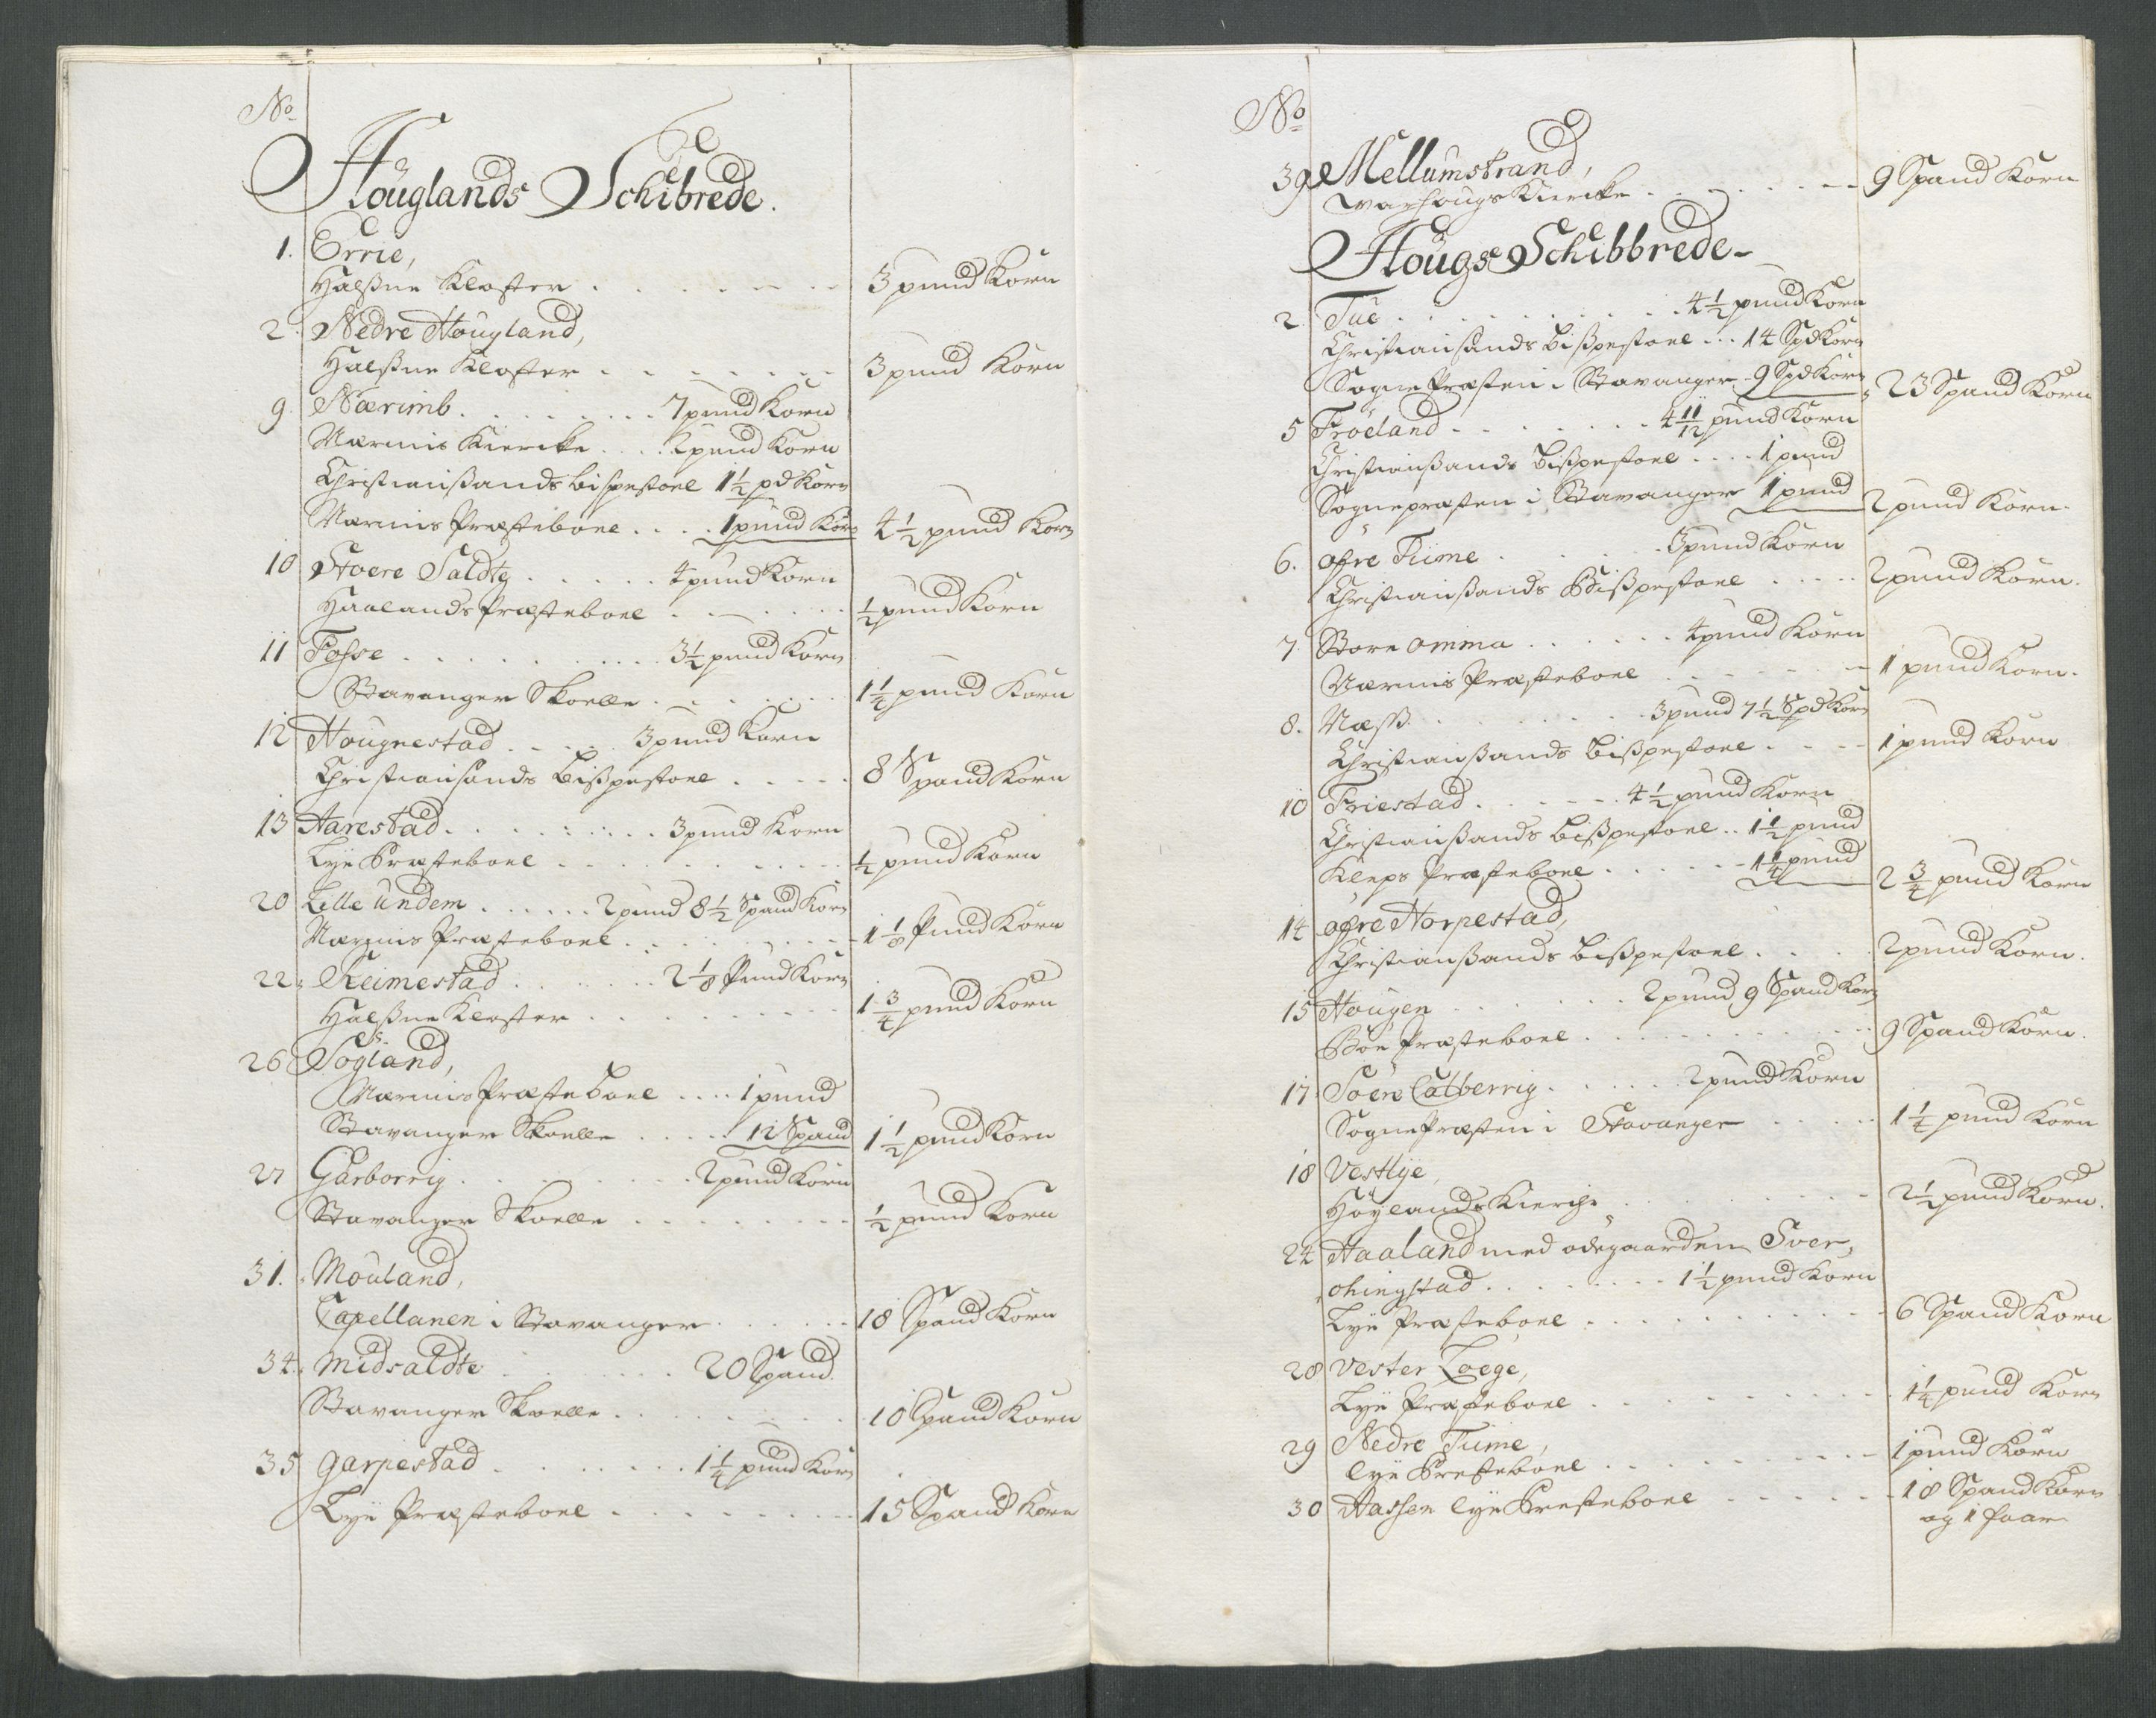 No
Höuglands Schibrede.
1. Errie,
Halßne Kloster . . . . . . 3 pund Korn
2. Nedre Hougland,
Halßne Kloster . . . . . . 3 pund Korn
9. Nærimb . . . . . . 7 pund Korn
Nærums Kiercke . . . . 2 pund Korn
Christianßands bispestoel 1 1/2 pd Korn
Nærums Præsteboel . . . . 1 pund Korn 4 1/2 pund Korn
10 Stoere Saldtg . . . . . 4 pund Korn
Haalands Præsteboel . . . . . 1/2 pund Korn
11 Fosse . . . . . . . . 3 1/2 pund Korn
Stavanger Skoelle . . . . . 1 1/4 pund Korn
12 Hougnestad . . . . . 3 pund Korn
Christiansands bißpestoel . . . . . 8 Spand Korn
13 Harestad . . . . . . . . 3 pund Korn
Lye Præsteboel . . . . . . . . 1/2 pund Korn
20 Lille Undem . . . . . . 2 pund 8 1/2 Spand Korn
Nærums Præsteboel . . . . . . . 1 1/8 Pund Korn
22. Reimestad . . . . . . . 2 1/8 Pund Korn
Halßne Kloster . . . . . . . . 1 3/4 pund Korn
26 Sögland,
Nærums Præsteboel . . . . 1 pund
Stavanger Skoelle . . . . . 12 Spand 1 1/2 pund Korn
27 Garborrig . . . . . . . . 2 pund Korn
Stavanger Skoelle . . . . . . . . 1/2 pund Korn
31. Mouland,
Capellanen i Stavanger . . . . . . 18 Spand Korn
34. Midsaldte . . . . . . . 20 Spand.
Stavanger Skoelle . . . . . . . . 10 Spand Korn
35 Garpestad . . . . . . . 1 1/4 pund Korn
Lye Præsteboel . . . . . . . . . 15 Spand Korn
No
39 Mellumstrand,
Warhougs Kiercke . . . . . . 9 Spand Korn
Hougs Schibbrede-
2. Tue . . . . . . . . . 4 1/2 pund Korn
Christiansands bißpestoel . . . 14 Spd Korn
Sogne Præsten i Stavanger 9 Spd Korn 23 Spand Korn
5 Fröeland . . . . . . . . 4 11/12 pund Korn
Christianßands bißpestoel . . . . 1 pund
Sognepræsten i Stavanger 1 pund 2 pund Korn.
6. ofre Tiime . . . . . 3 pund Korn
Christianßands Bißpestoel . . . . . 2 pund Korn.
7. Store omma . . . . . 4 pund Korn
Nærums Præsteboel . . . . . . 1 pund Korn.
8. Næss . . . . . . . 3 pund 7 1/2 Spd Korn
Christianßands bißpestoel . . . . 1 pund Korn
10 Friestad . . . . . . 4 1/2 pund Korn
Christianßands bißpestoel . . 1 1/2 pund
Kleps Præsteboel . . . . . 1 1/4 pund 2 3/4 pund Korn
14 ofre Horpestad,
Christianßands bißpestoel . . . . 2 pund Korn.
15 Hougen . . . . . . . 2 pund 9 Spand Korn
Böe Præsteboel . . . . . . . . . 9 Spand Korn.
17. Soere Calberrig . . . . . . 2 pund Korn
Sogne Præsten i Stavanger . . . . . 1 1/4 pund Korn
18 Vestlye,
Höylands Kierche . . . . . . . . 2 1/2 pund Korn.
24 Haaland med ödegaarden Sver,
ohingstad . . . . . . . . 1 1/2 pund Korn
Lye Præsteboel . . . . . . . . . 6 Spand Korn
28 Vester Loege,
Lye Præsteboel . . . . . . . . . 1 1/4 pund Korn
29 Nedre Tiime,
Lye Presteboel . . . . . . . . . 1 pund Korn
30 Hassen Lye Presteboel . . . . . 18 Spand Korn
og 1 faar